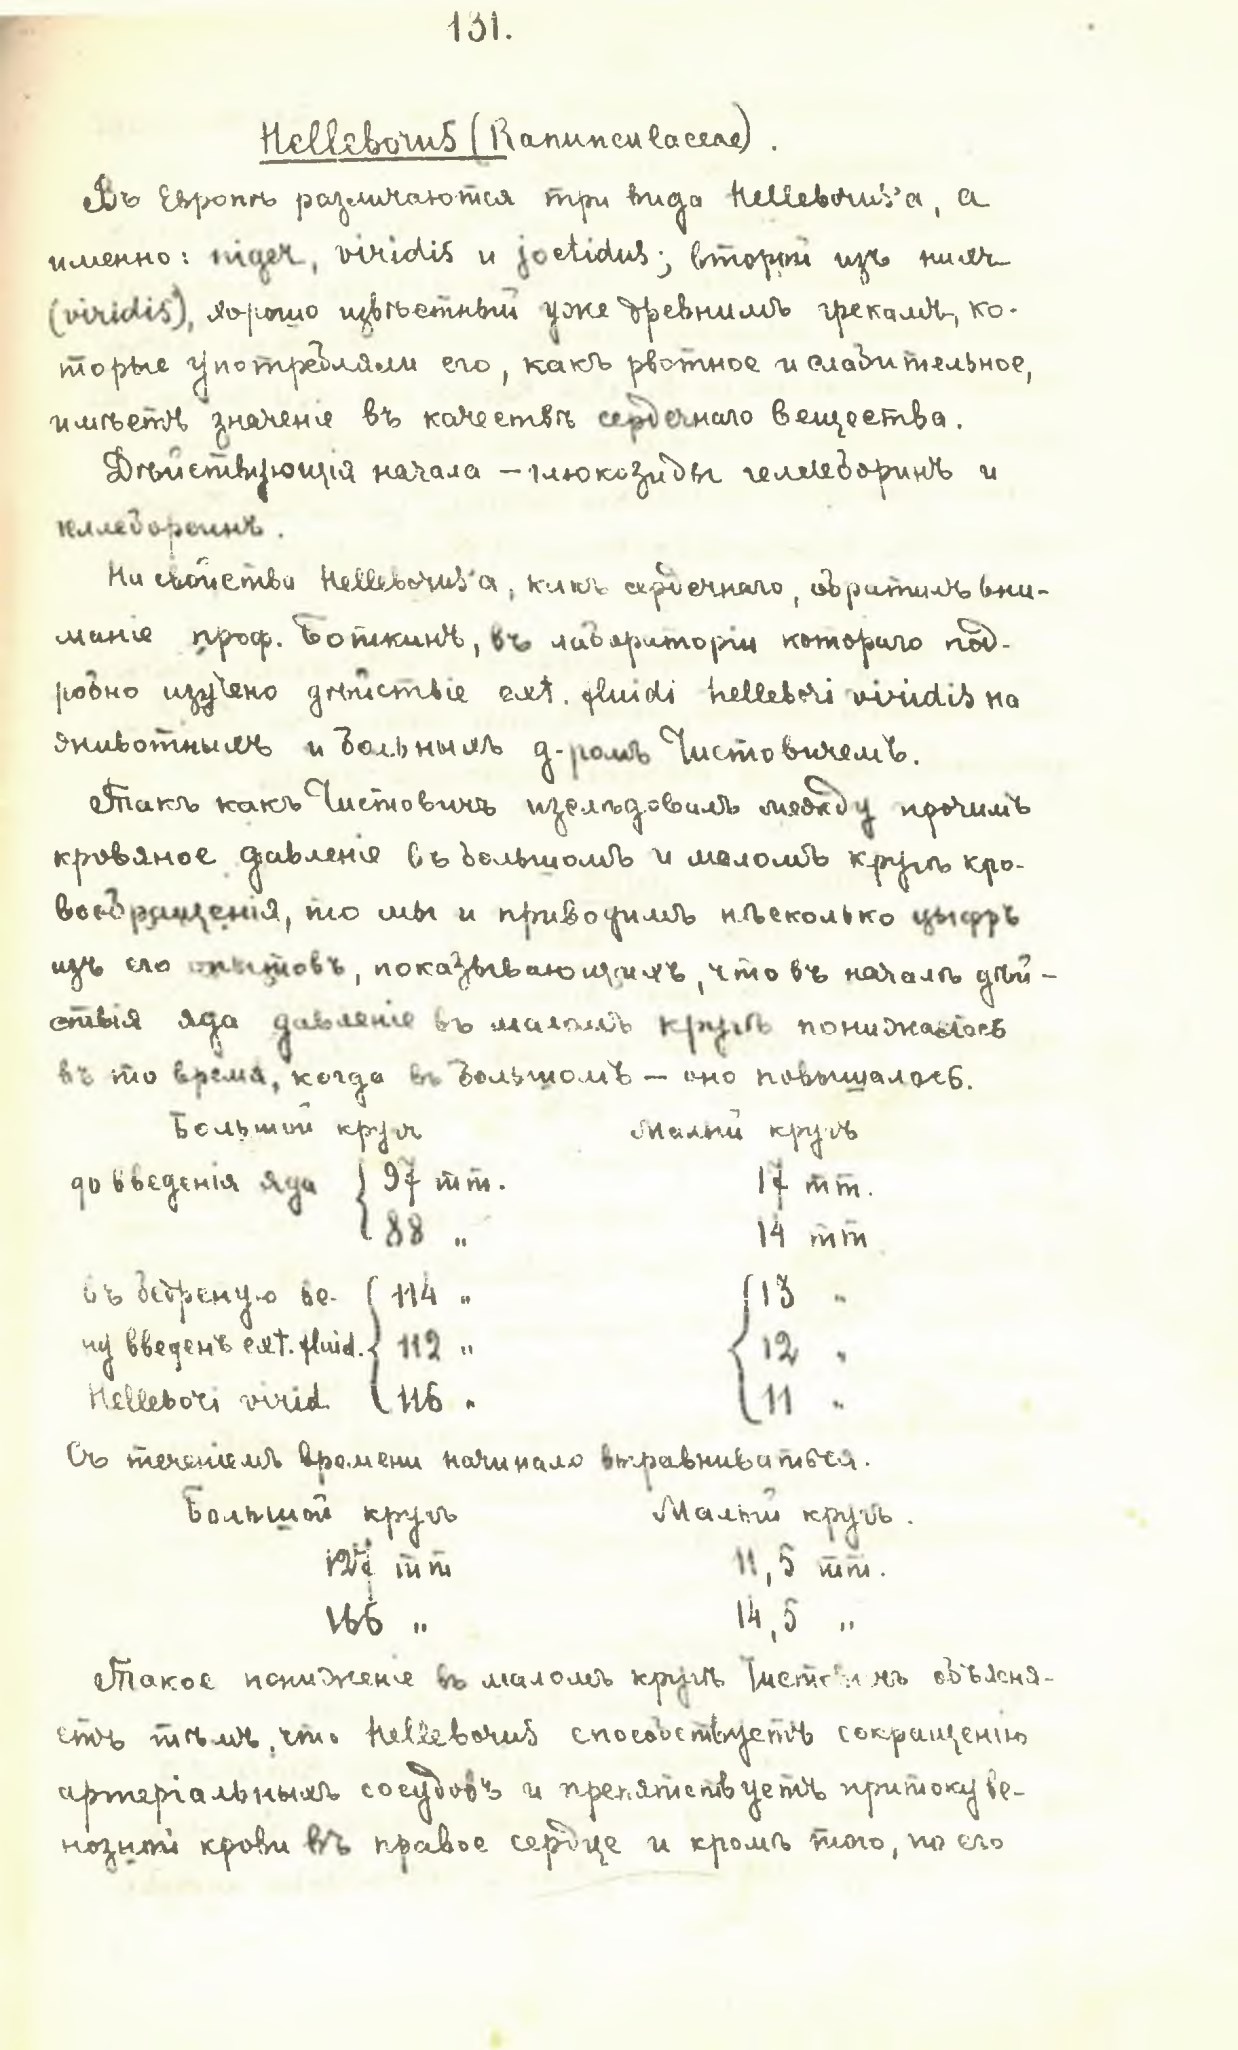 131.
Helleborus (Ranunculaceae).
Въ Европѣ различаются три вида Helleborus'a, а
именно: niger, viridis и foetidus; второй изъ нихъ
(viridis), хорошо извѣстный уже древнимъ грекамъ, ко-
торые употребляли его, какъ рвотное и слабительное,
имѣетъ значеніе въ качествѣ сердечнаго вещества.
Дѣйствующія начала – глюкозиды геллеборинъ и
геллебореинъ.
На свойства Helleborus'a, какъ сердечнаго, обратилъ вни-
маніе проф. Боткинъ, въ лабораторіи котораго под-
робно изучено дѣйствіе ext. fluidi hellebori viridis на
животныхъ и больныхъ д-ромъ Чистовичемъ.
Такъ какъ Чистовичъ изслѣдовалъ между прочимъ
кровяное давленіе въ большомъ и маломъ кругѣ кро-
вообращенія, то мы и приводимъ нѣсколько цыфръ
изъ его опытовъ, показывающихъ, что въ началѣ дѣй-
ствія яда давленіе въ маломъ кругѣ понижалось
въ то время, когда въ большомъ – оно повышалось.
Большой кругъ Малый кругъ
до введенія яда { 97 mm. 17 mm.
88 „ 14 mm
въ бедреную ве- { 114 „ { 13 „
ну введенъ ext. fluid. 112 „ 12 „
Hellebori virid. 116 „ 11 „
Съ теченіемъ времени начинало выравниваться.
Большой кругъ Малый кругъ.
127 mm 11,5 mm.
166 „ 14,5 „
Такое пониженіе въ маломъ кругѣ Чистовичъ объясня-
етъ тѣмъ, что Helleborus способствуетъ сокращенію
артеріальныхъ сосудовъ и препятствуетъ притоку ве-
нозной крови въ правое сердце и кромѣ того, по его